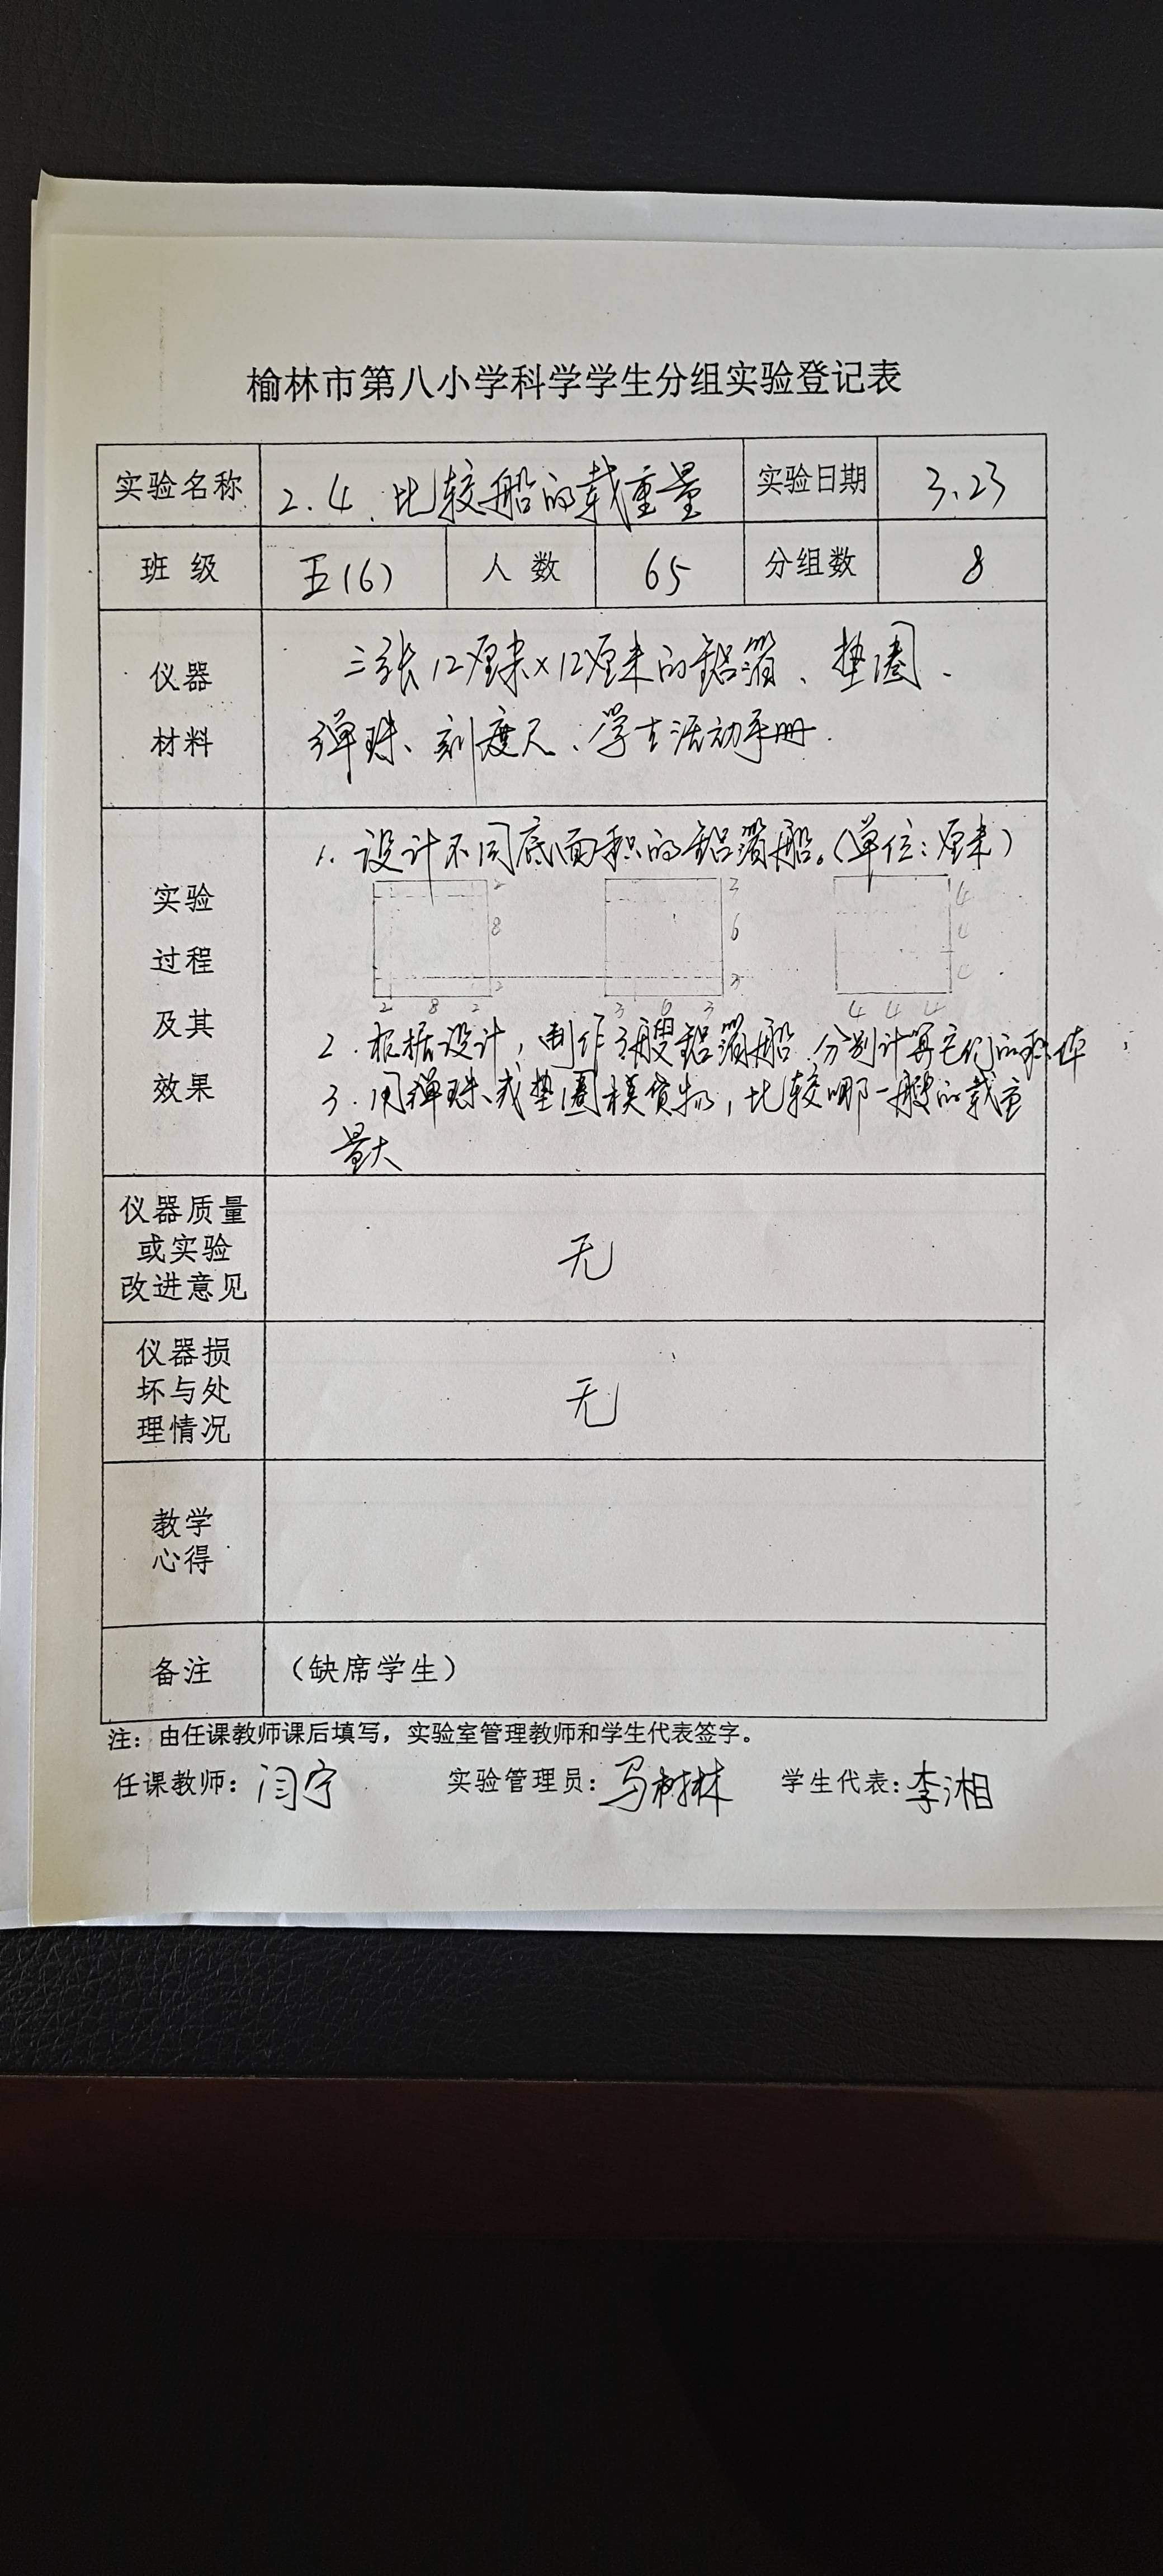 榆林市第八小学科学学生分组实验登记表
实验名称 2.4、比较船的载重量 实验日期 3.23
班级 五(6) 人数 65 分组数 8
仪器
材料
三张12厘米×12厘米的铝箔、垫圈、
弹珠、刻度尺、学生活动手册.
实验
过程
及其
效果
1. 设计不同底面积的铝箔船。(单位:厘米)
2 3 4
8 6 4
2 3 4
2 8 2 3 6 3 4 4 4
2. 根据设计,制作3艘铝箔船.分别计算它们的
3. 用弹珠、或垫圈模货物,比较哪一艘的载重
量大
仪器质量
或实验
改进意见
无
仪器损
坏与处
理情况
无
教学
心得
备注 (缺席学生)
注:由任课教师课后填写,实验室管理教师和学生代表签字。
任课教师:闫宁 实验管理员:马树林 学生代表:李湘